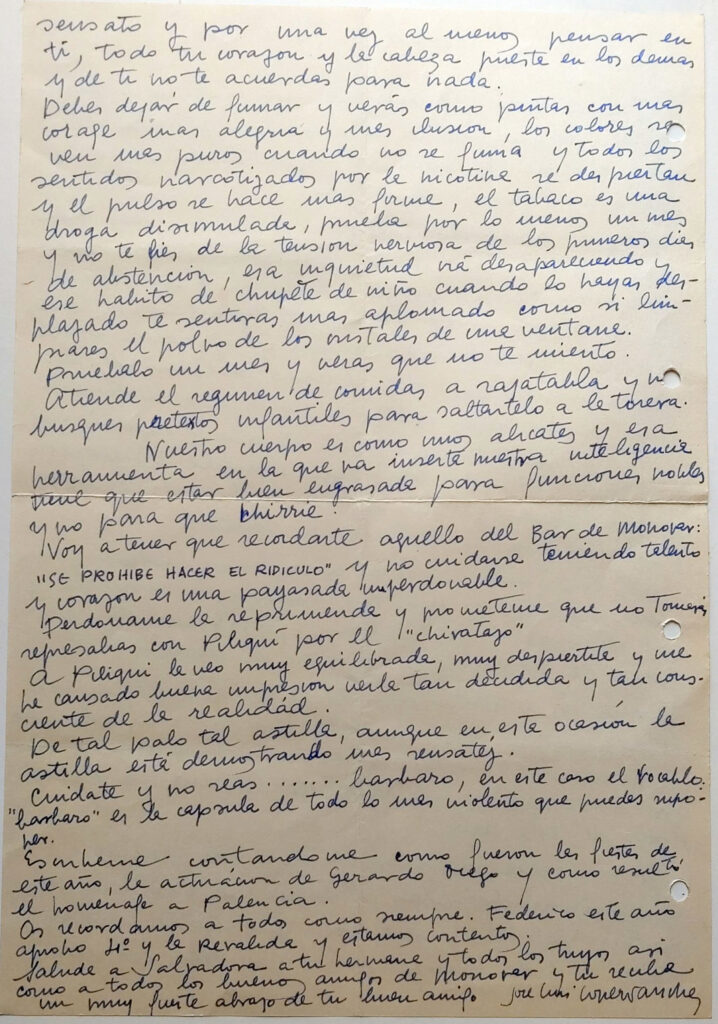 sensato y por una vez al menos pensar en
ti, todo tu corazon y la cabeza puesta en los demas
y de ti no te acuerdas para nada.
Debes dejar de fumar y verás como pintas con mas
corage mas alegria y mas ilusion, los colores se
ven mas puros cuando no se fuma y todos los
sentidos narcotizados por la nicotina se despiertan
y el pulso se hace mas firme, el tabaco es una
droga disimulada, prueba por lo menos un mes
y no te fies de la tension nerviosa de los primeros dias
de abstención, esa inquietud irá desapareciendo y
ese habito de chupete de niño cuando lo hayas des-
plazado te sentiras mas aplomado como si lim-
piares el polvo de los cristales de una ventana.
Pruebalo un mes y veras que no te miento.
Atiende el regimen de comidas a rajatabla y no
busques pretextos infantiles para saltartelo a la torera.
Nuestro cuerpo es como unos alicates y esa
herramienta en la que va inserta nuestra inteligencia
tiene que estar bien engrasada para funciones nobles
y no para que chirrie.
Voy a tener que recordarte aquello del Bar de Monovar:
"SE PROHIBE HACER EL RIDICULO" y no cuidarse teniendo talento
y corazon es una payasada imperdonable.
Perdoname la reprimenda y prometeme que no Tomarás
represalias con Piliqui por el "chivatazo"
A Piliqui la veo muy equilibrada, muy despiertita y me
ha causado buena impresion verla tan decidida y tan cons-
ciente de la realidad.
De tal palo tal astilla, aunque en este ocasión la
astilla está demostrando mas sensatez.
Cuidate y no seas ....... barbaro, en este caso el vocablo
"barbaro" es la capsula de todo lo mas violento que puedes supo-
ner.
Escribeme contandome como fueron las fiestas de
este año, la actuacion de Gerardo Diego y como resultó
el homenage a Palencia.
Os recordamos a todos como siempre. Federico este año
aprobo 4º y la Revalida y estamos contentos.
Saluda a Salvadora a tu hermana y todos los tuyos asi
como a todos los buenos amigos de Monovar y tu recibe
un muy fuerte abrazo de tu buen amigo Jose Luis